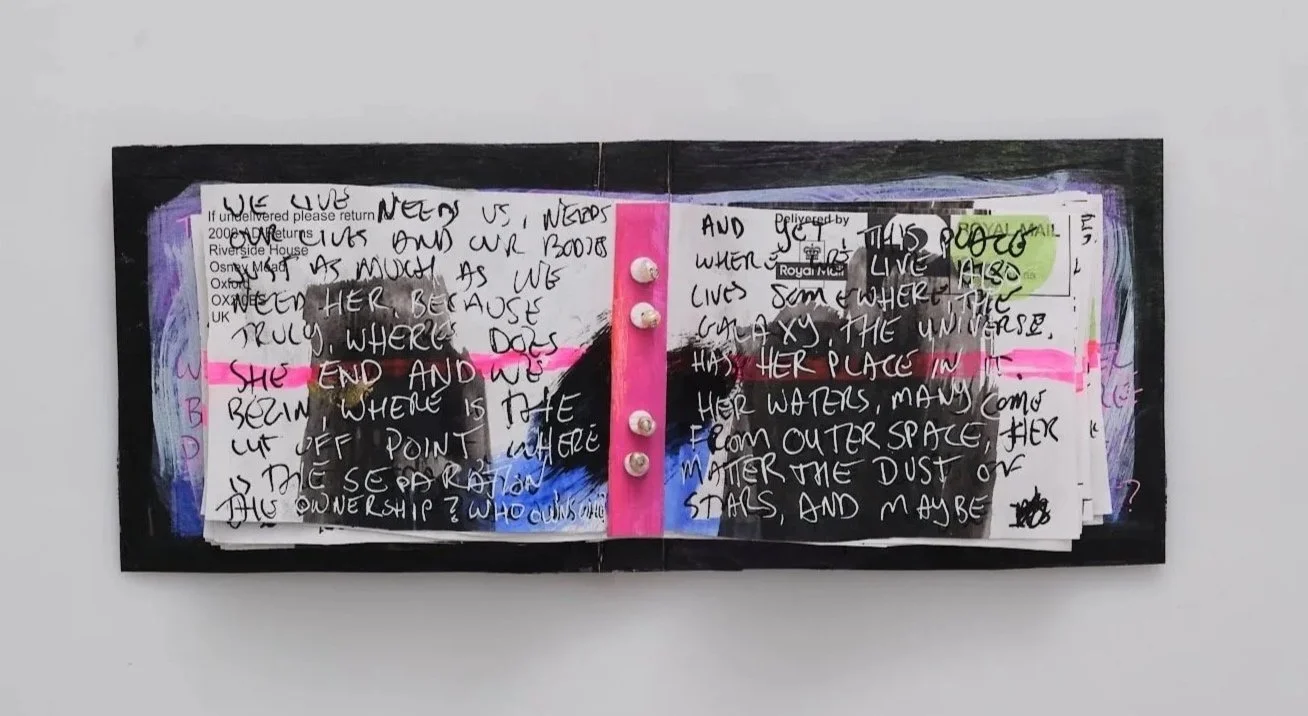 WE LIVE NEEDS US, NEEDS
OUR LIVES AND OUR BODIES
JUST AS MUCH AS WE
NEED HER. BECAUSE
TRULY, WHERE DOES
SHE END AND WE
BEGIN, WHERE IS THE
CUT OFF POINT WHERE
IS THE SEPARATION
THE OWNERSHIP? WHO OWNS
If undelivered please return
2000 AD Returns
Riverside House
Osney Mead
Oxford
UK
AND YET, THIS PLACE
WHERE WE LIVE ALSO
LIVES SOMEWHERE THE
GALAXY, THE UNIVERSE,
HAS HER PLACE IN IT.
HER WATERS, MANY COME
FROM OUTER SPACE, HER
MATTER THE DUST OF
STARS, AND MAYBE
Delivered by
Royal Mail
ROYAL MAIL